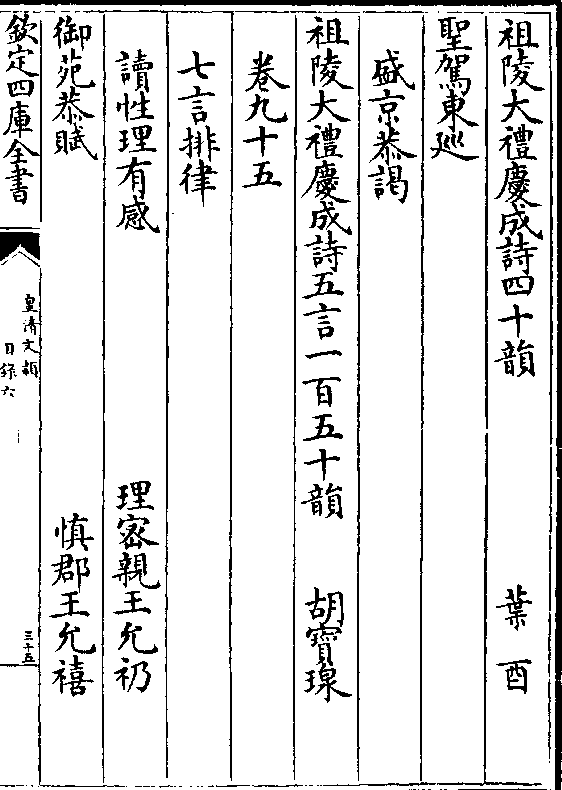 祖陵大禮慶成詩四十韻 葉酉
聖駕東巡
盛京恭謁
祖陵大禮慶成詩五言一百五十韻 胡寶瑔
卷九十五
七言排律
讀性理有感 理密親王允礽
御苑恭賦 慎郡王允禧
欽定四庫全書
皇清文穎
目錄六
三十五